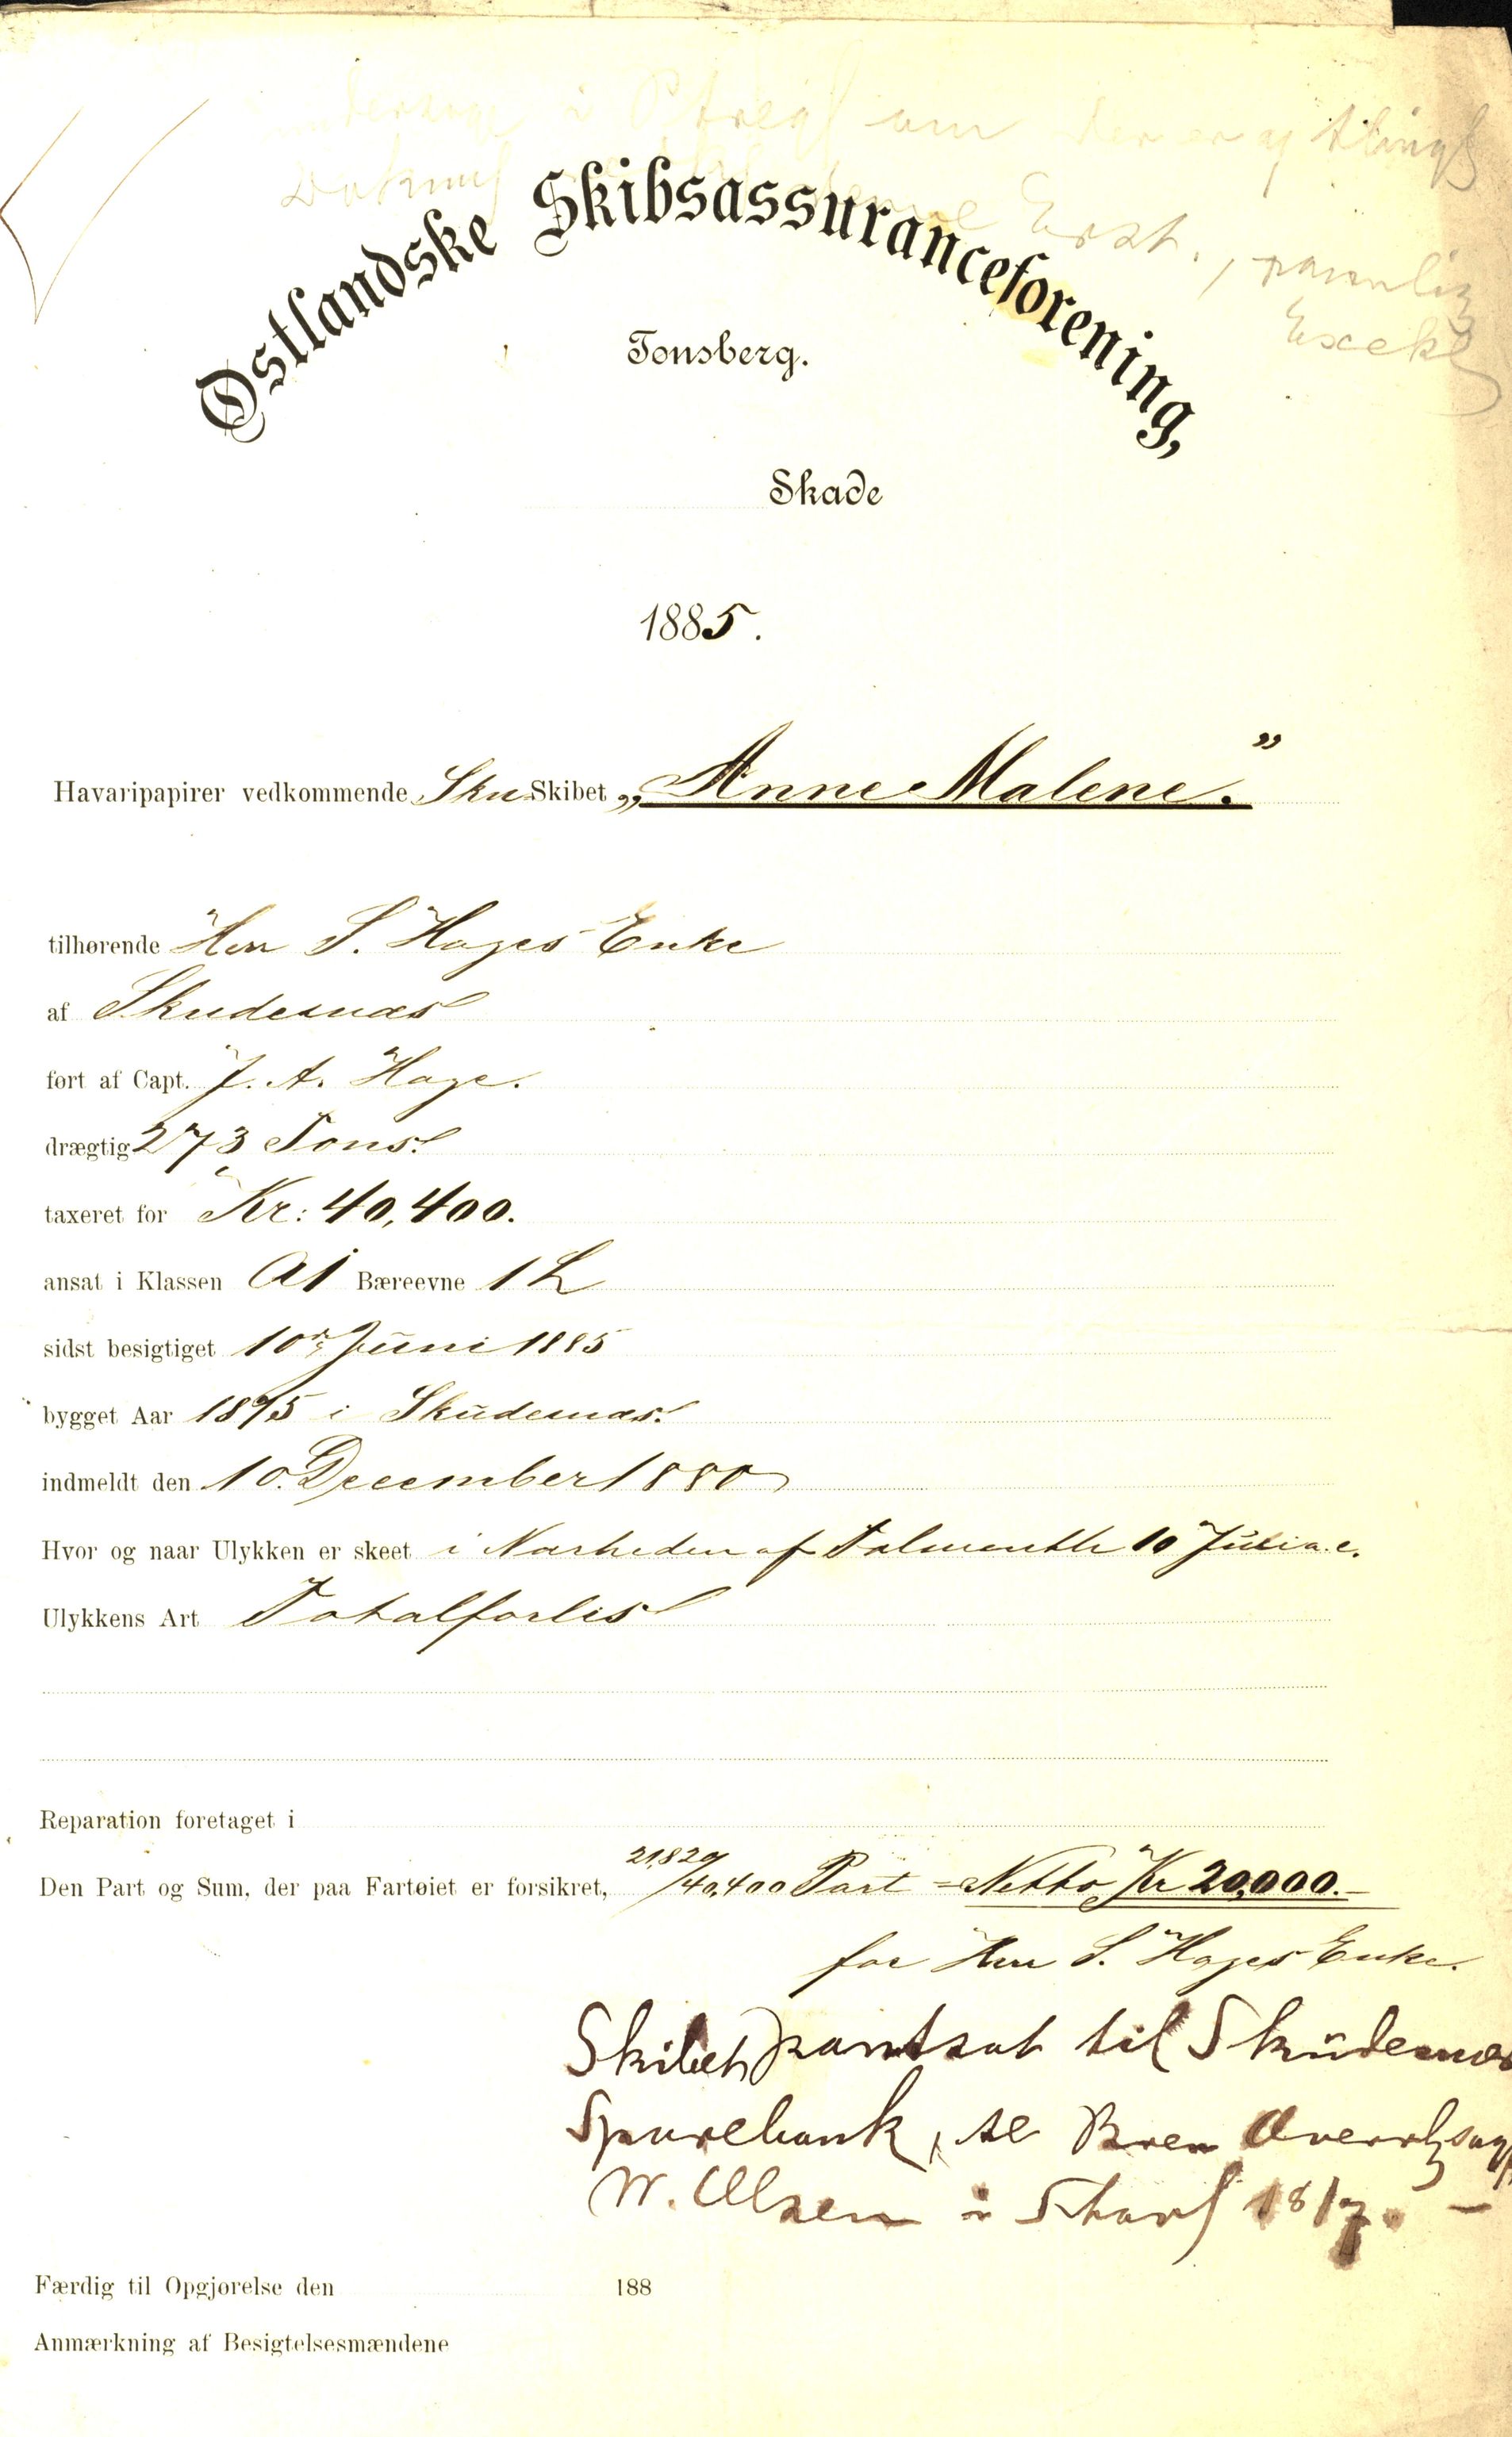 Østlandske Skibsassuranceforening,
Tønsberg.
Skade
1885.
Havaripapirer vedkommende Sku Skibet „Anne Malene."
tilhørende Herr S. Hages Enke
af Skudesnæs
ført af Capt. J. A. Hage.
drægtig 273 Tons.
taxeret for Kr: 40,400.
ansat i Klassen A1 Bæreevne 1 L
sidst besigtiget 10de Juni 1885
bygget Aar 1875 i Skudesnæs.
indmeldt den 10. December 1880
Hvor og naar Ulykken er skeet i Nærheden af Falmouth 10 Juli a.c.
Ulykkens Art Totalforlis
Reparation foretaget i
Den Part og Sum, der paa Fartøiet er forsikret, 21,820/40,400 Part = Netto Kr 20,000.–
for Herr S. Hages Enke.
Skibet pantsat til Skudesnæs
Sparebank, se Brev Overretssagf.
W. Olsen i 18/7. –
Færdig til Opgjørelse den 188
Anmærkning af Besigtelsesmændene